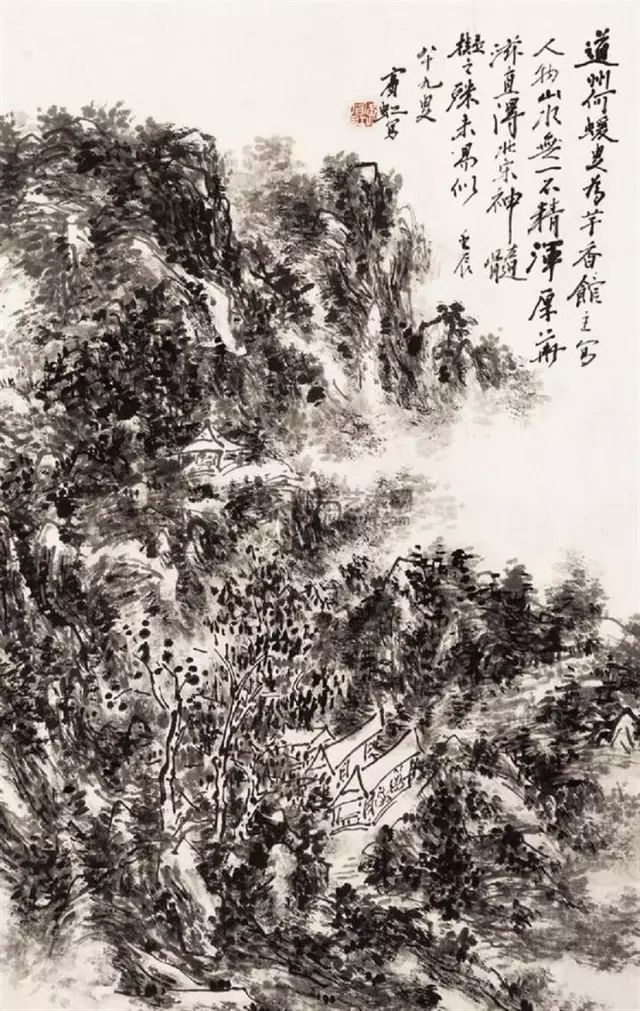 道州何蝯叟為芋香館主寫
人物山水無一不精渾厚華
滋直得北宋神髓
擬之殊未易似 壬辰
八十九叟
賓虹寫